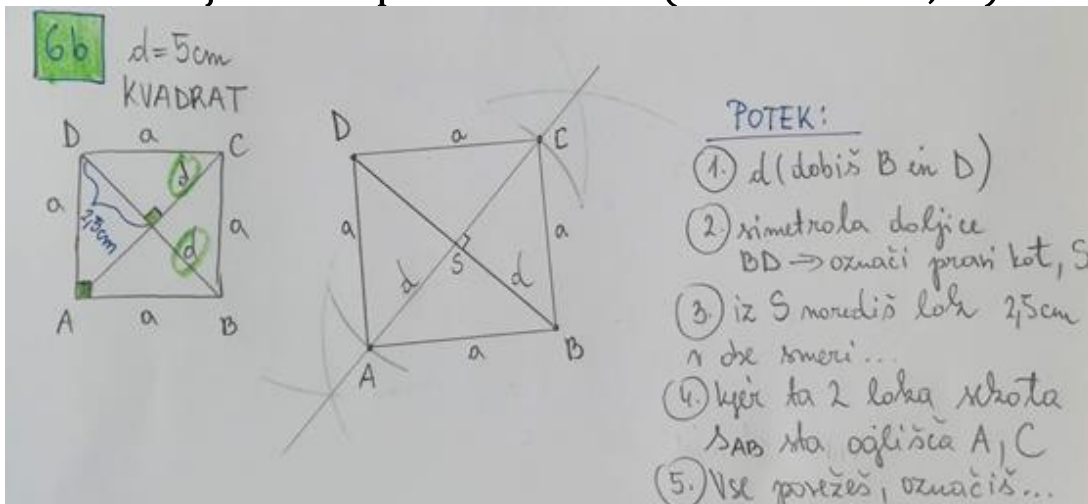 6b
d=5cm
KVADRAT
D a C
a d a
2,5cm d
A a B
D a C
a S a
d d
A a B
POTEK:
1. d (dobiš B in D)
2. simetrala daljice
BD → označi pravi kot, S
3. iz S narediš lok 2,5cm
v obe smeri...
4. kjer ta 2 loka sekata
SAB sta oglišča A, C
5. Vse povežeš, označiš...